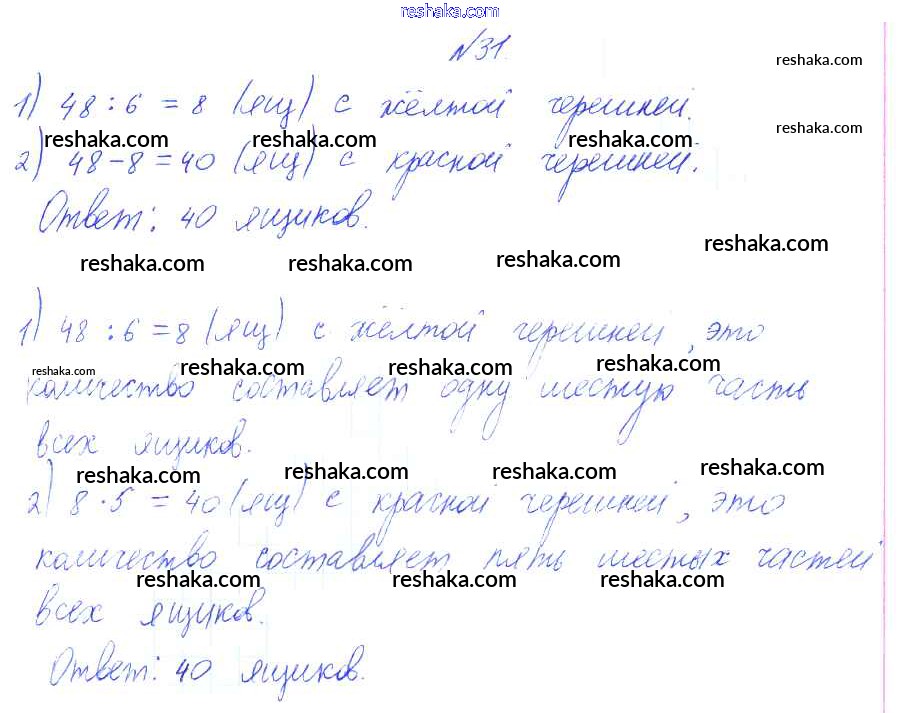 reshaka.com
№31.
reshaka.com
1) 48 : 6 = 8 (ящ) с жёлтой черешней.
reshaka.com reshaka.com reshaka.com reshaka.com
2) 48 - 8 = 40 (ящ) с красной черешней.
Ответ: 40 ящиков.
reshaka.com reshaka.com reshaka.com reshaka.com
1) 48 : 6 = 8 (ящ) с жёлтой черешней, это
reshaka.com reshaka.com reshaka.com reshaka.com
количество составляет одну шестую часть
всех ящиков.
reshaka.com reshaka.com reshaka.com reshaka.com
2) 8 · 5 = 40 (ящ) с красной черешней, это
количество составляет пять шестых частей
reshaka.com reshaka.com reshaka.com
всех ящиков.
Ответ: 40 ящиков.